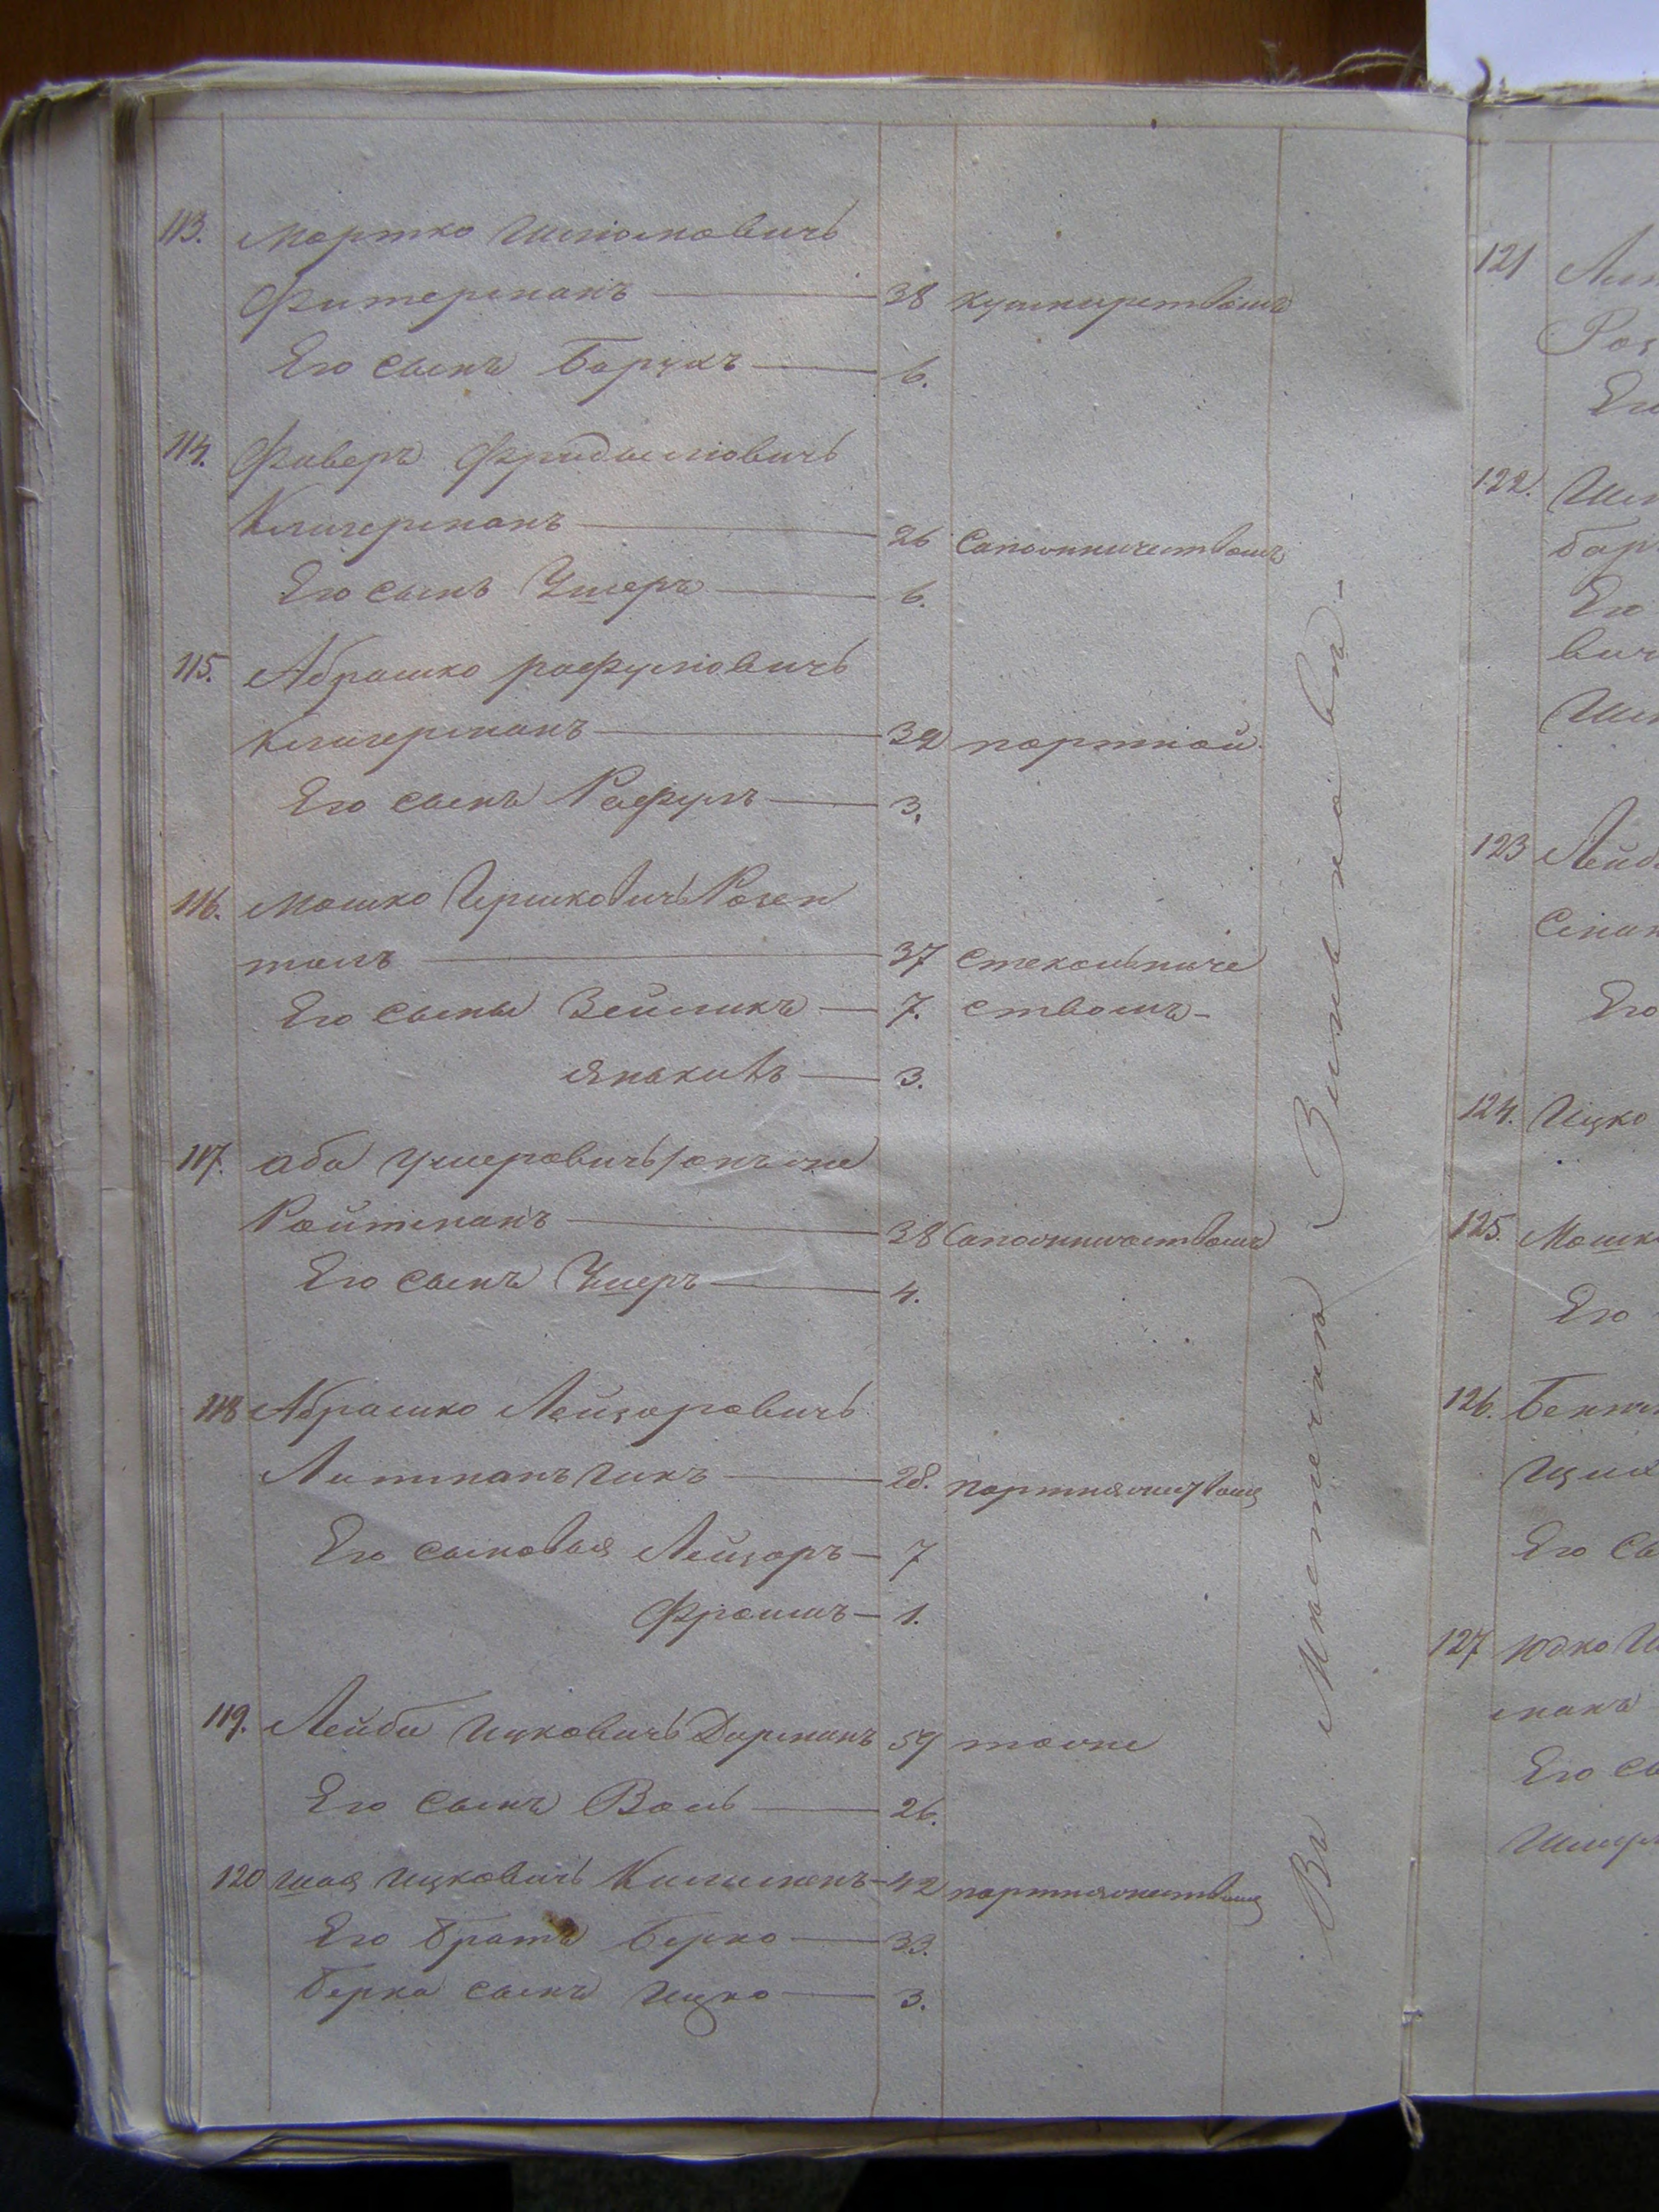 113. Мортко Шлиомовичъ
Фитерманъ — 38 кушнирствомъ
Его сынъ Борухъ — 6.
114. Фавель
Клигерманъ — 26 Сапожничествомъ
Его сынъ Ушеръ — 6.
115. Абрашко рафуловичъ
Клигерманъ — 32 портной
Его сынъ Рафулъ — 3.
116. Мошко Гершковичъ Розен
талъ — 37 Стекольниче
Его сыны Зейликъ — 7. ствомъ-
Янкель — 3.
117. аба Ушеровичъ онъ же
Ройтманъ — 38 Сапожничествомъ
Его сынъ Ушеръ — 4.
118 Абрашко Лейзоровичъ
Литман — 28. портняжествомъ
Его сыновья Лейзоръ — 7
Фроимъ — 1.
119. Лейба Ицковичъ Дорманъ 59 тоже
Его сынъ Воль — 26.
120 Шая Ицковичъ — 42 портняжествомъ
Его братъ Берко — 33.
Берка сынъ Ицко — 3.
Въ Местечкѣ Зинькове -
121
Роз
Его
122.
бар
Его
вич
123 Лейб
Его
124. Ицко
125. Мошк
Его
126.
Его сы
127 Юдко
манъ
Его сы